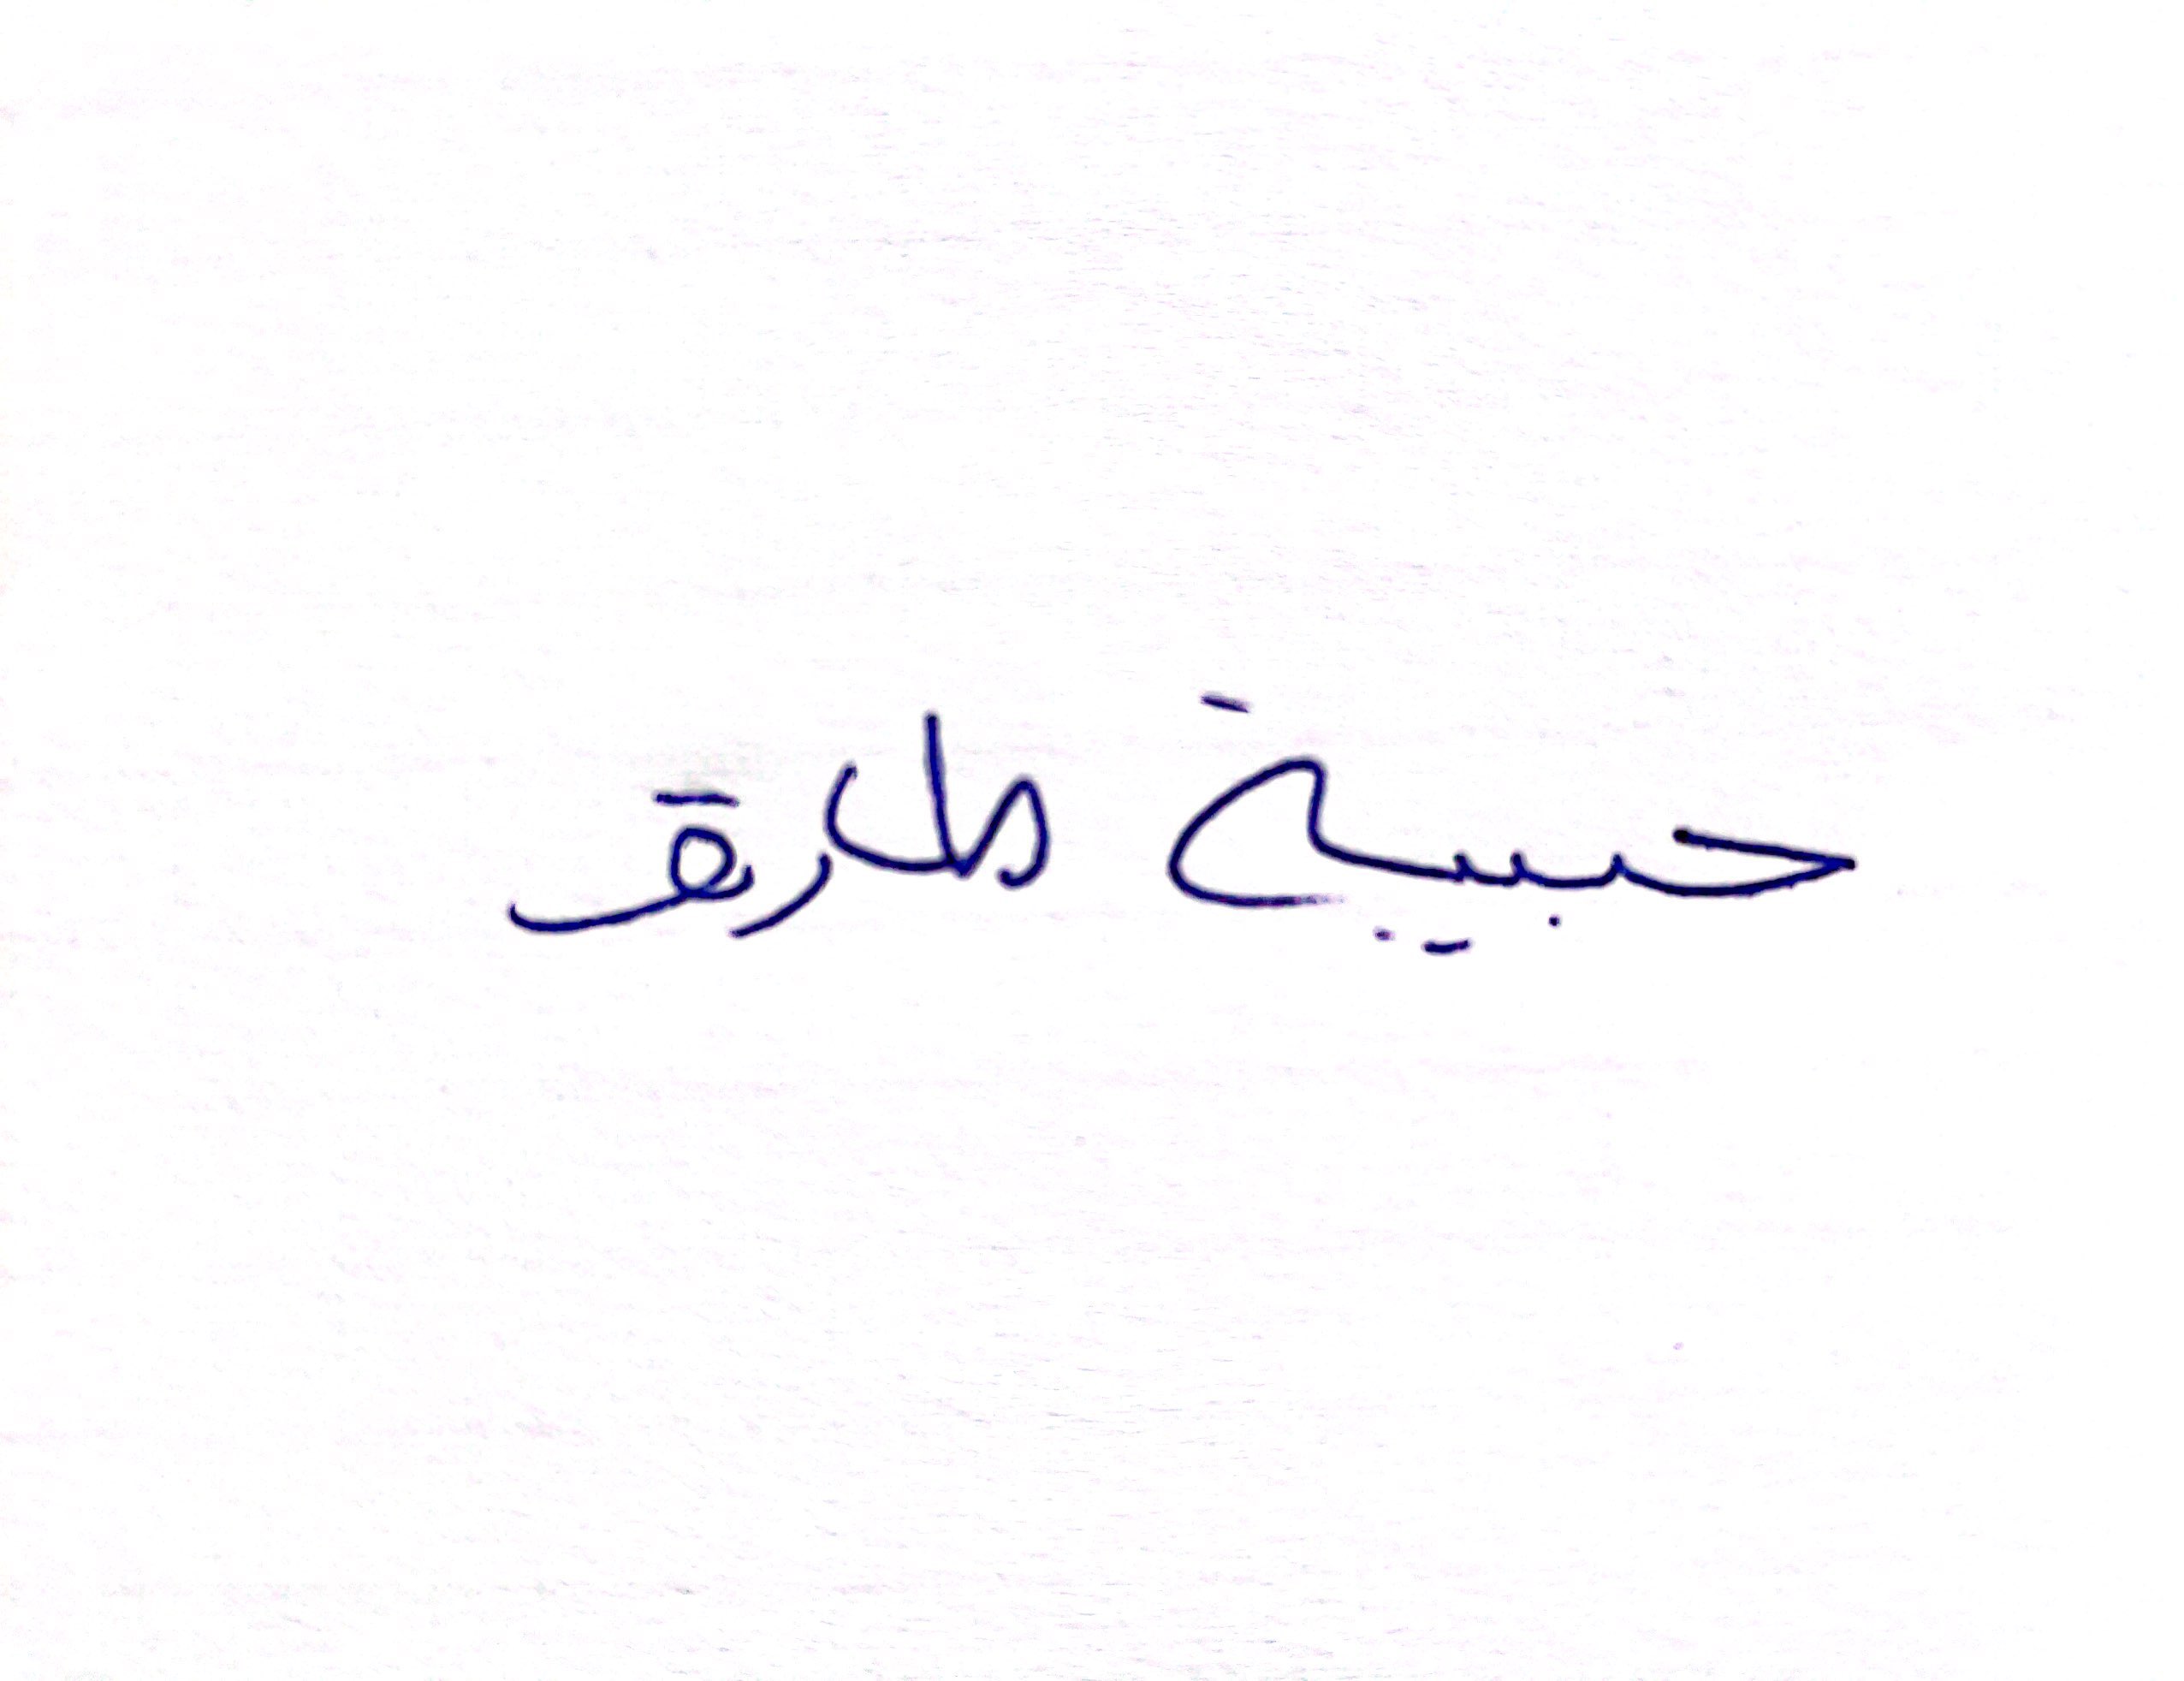 حبيبة طارق